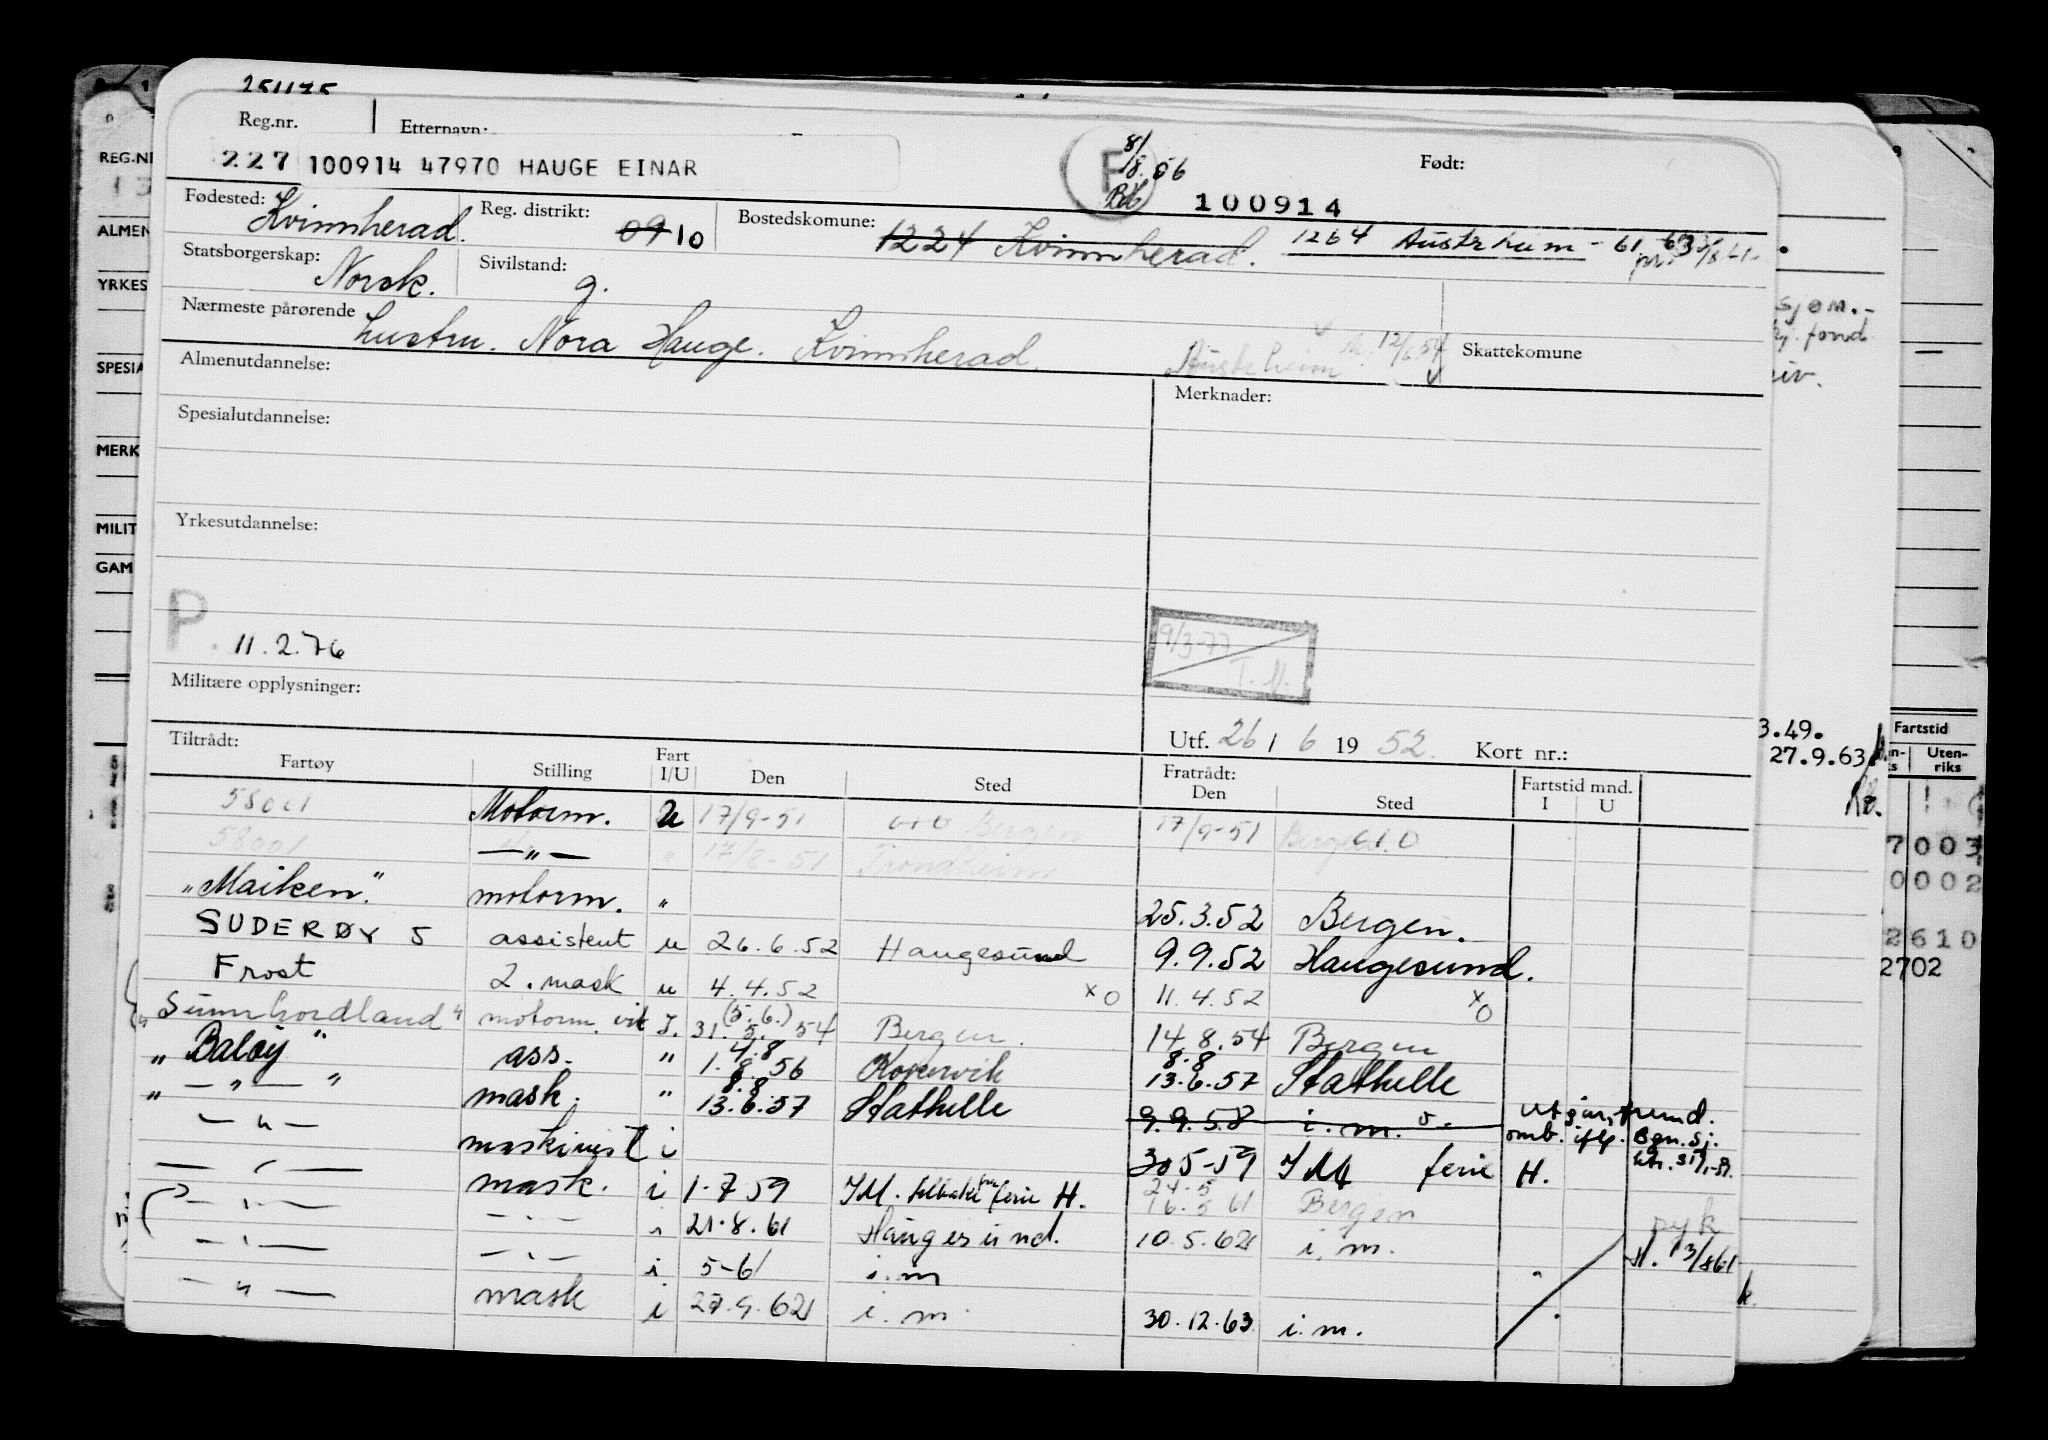 251175
Reg.nr. Etternavn:
227 100914 47970 HAUGE EINAR F 8/8.56 Født:
100914
Fødested: Kvinnherad. Reg. distrikt: 09 10 Bostedskomune: 1224 Kvinnherad. 1264 Austrheim - 61
Statsborgerskap: Norsk. Sivilstand: g.
Nærmeste pårørende hustru. Nora Hauge. Kvinnherad. Austrheim 12/6.54 Skattekomune
Almenutdannelse: Merknader:
Spesialutdannelse:
Yrkesutdannelse:
P. 11.2.76
9/3-77 T. M.
Militære opplysninger:
Utf. 26/6 1952. Kort nr.:
Tiltrådt: Fratrådt:
Fartøy Stilling Fart I/U Den Sted Den Sted Fartstid mnd. I U
58001 Motorm. u 17/9-51 Bergen 17/9-51 Bergen
58001 — " — " 17/8-51 Trondheim
"Maiken." motorm. " 25.3.52 Bergen.
SUDERØY 5 assistent u 26.6.52 Haugesund 9.9.52 Haugesund.
Frost 2. mask u 4.4.52 x o 11.4.52 x o
"Sunnhordland" motorm. vik I. 31.5.54 (5.6.) Bergen. 14.8.54 Bergen
"Baløy" ass. " 1.8.56 4.8 Kopervik 13.6.57 8.8 Stathelle
" — " — " mask. " 13.6.57 8.8 Stathelle 9.9.58 i. m.
— " — maskinist i 30.5-59 IM ferie H.
— " — mask. i 1.7.59 IM. tilbake fra ferie H. 16.5 61 24.5 Bergen
— " — — " — " 21.8.61 Haugesund. 10.5.62 i. m.
— " — — " — i 5-61 i. m
— " — mask i 27.9.62 i. m. 30.12.63 i. m.
REG.NR
ALMEN
YRKES
SPESIA
MERK
MILIT
GAM
sjøm.-
fond
3.49.
27.9.63
Fartstid
Uten-
riks
7003
0002
2610
2702